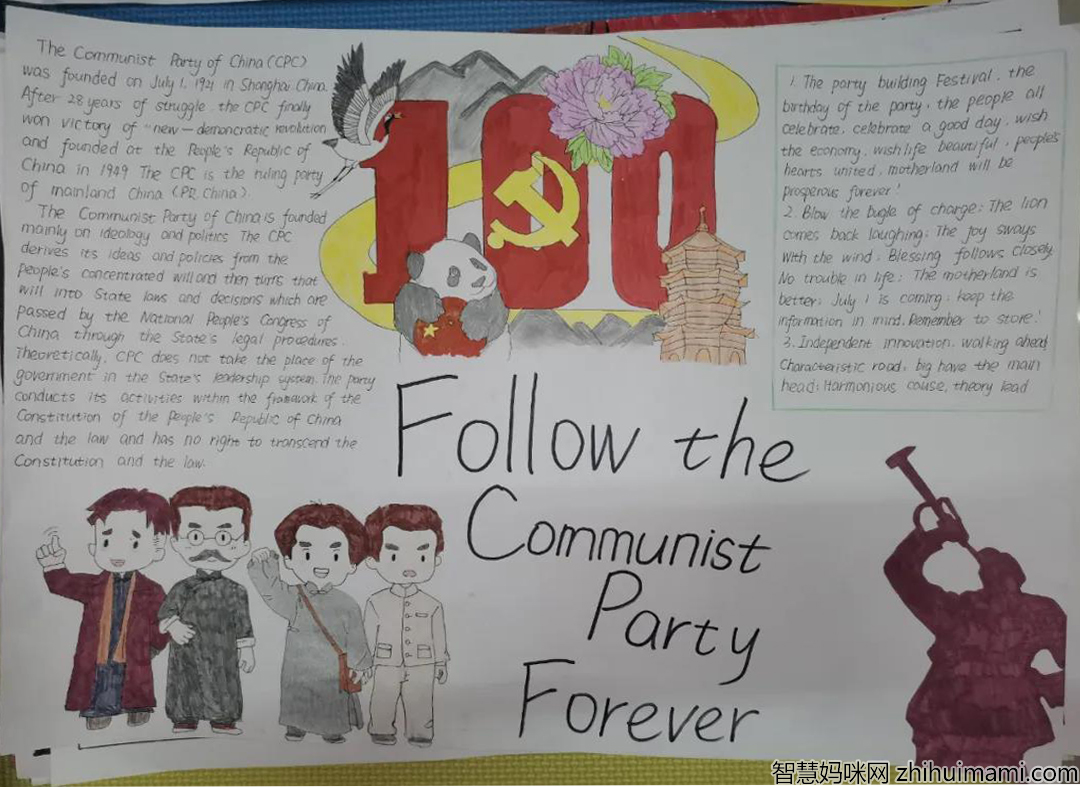 The Communist Party of China (CPC)
was founded on July 1, 1921 in Shanghai China.
After 28 years of struggle, the CPC finally
won victory of "new-demoncratic revolution
and founded at the People's Republic of
China in 1949 The CPC is the ruling party
of mainland China (P.R. China).
The Communist Party of China is founded
mainly on ideology and politics The CPC
derives its ideas and policies from the
people's concentrated will and then turns that
will into State laws and decisions which are
passed by the National People's Congress of
China through the State's legal procedures.
Theoretically, CPC does not take the place of the
government in the State's leadership system. The party
conducts its activities within the framework of the
Constitution of the People's Republic of China
and the law and has no right to transcend the
Constitution and the law.
100
1. The party building Festival, the
birthday of the party, the people all
celebrate, celebrate a good day, wish
the economy, wish life beautiful, people's
hearts united, motherland will be
prosperous forever!
2. Blow the bugle of charge: The lion
comes back laughing; The joy sways
with the wind; Blessing follows closely
No trouble in life; The motherland is
better; July 1 is coming; keep the
information in mind, Remember to store!
3. Independent innovation, walking ahead
Characteristic road; big have the main
head; Harmonious cause, theory lead
Follow the
Communist
Party
Forever
智慧妈咪网 zhihuimami.com